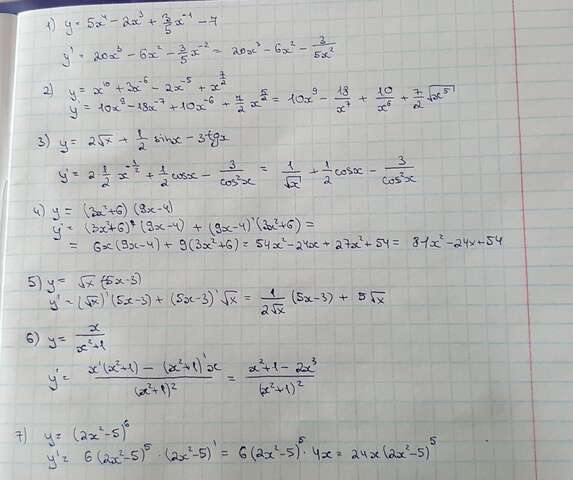 1) y = 5x⁴ - 2x³ + 3/5 x⁻¹ - 7
y' = 20x³ - 6x² - 3/5 x⁻² = 20x³ - 6x² - 3/(5x²)
2) y = x¹⁰ + 3x⁻⁶ - 2x⁻⁵ + x^(7/2)
y = 10x⁹ - 18x⁻⁷ + 10x⁻⁶ + 7/2 x^(5/2) = 10x⁹ - 18/x⁷ + 10/x⁶ + 7/2 √x⁵
3) y = 2√x + 1/2 sinx - 3tgx
y' = 2 1/2 x^(-1/2) + 1/2 cosx - 3/cos²x = 1/√x + 1/2 cosx - 3/cos²x
4) y = (3x²+6)(9x-4)
y' = (3x²+6)'(9x-4) + (9x-4)'(3x²+6) =
= 6x(9x-4) + 9(3x²+6) = 54x² - 24x + 27x² + 54 = 81x² - 24x + 54
5) y = √x (5x-3)
y' = (√x)'(5x-3) + (5x-3)'√x = 1/(2√x) (5x-3) + 5√x
6) y = x/(x²+1)
y' = (x'(x²+1) - (x²+1)'x)/(x²+1)² = (x²+1-2x³)/(x²+1)²
7) y = (2x²-5)⁶
y' = 6(2x²-5)⁵ · (2x²-5)' = 6(2x²-5)⁵ · 4x = 24x(2x²-5)⁵